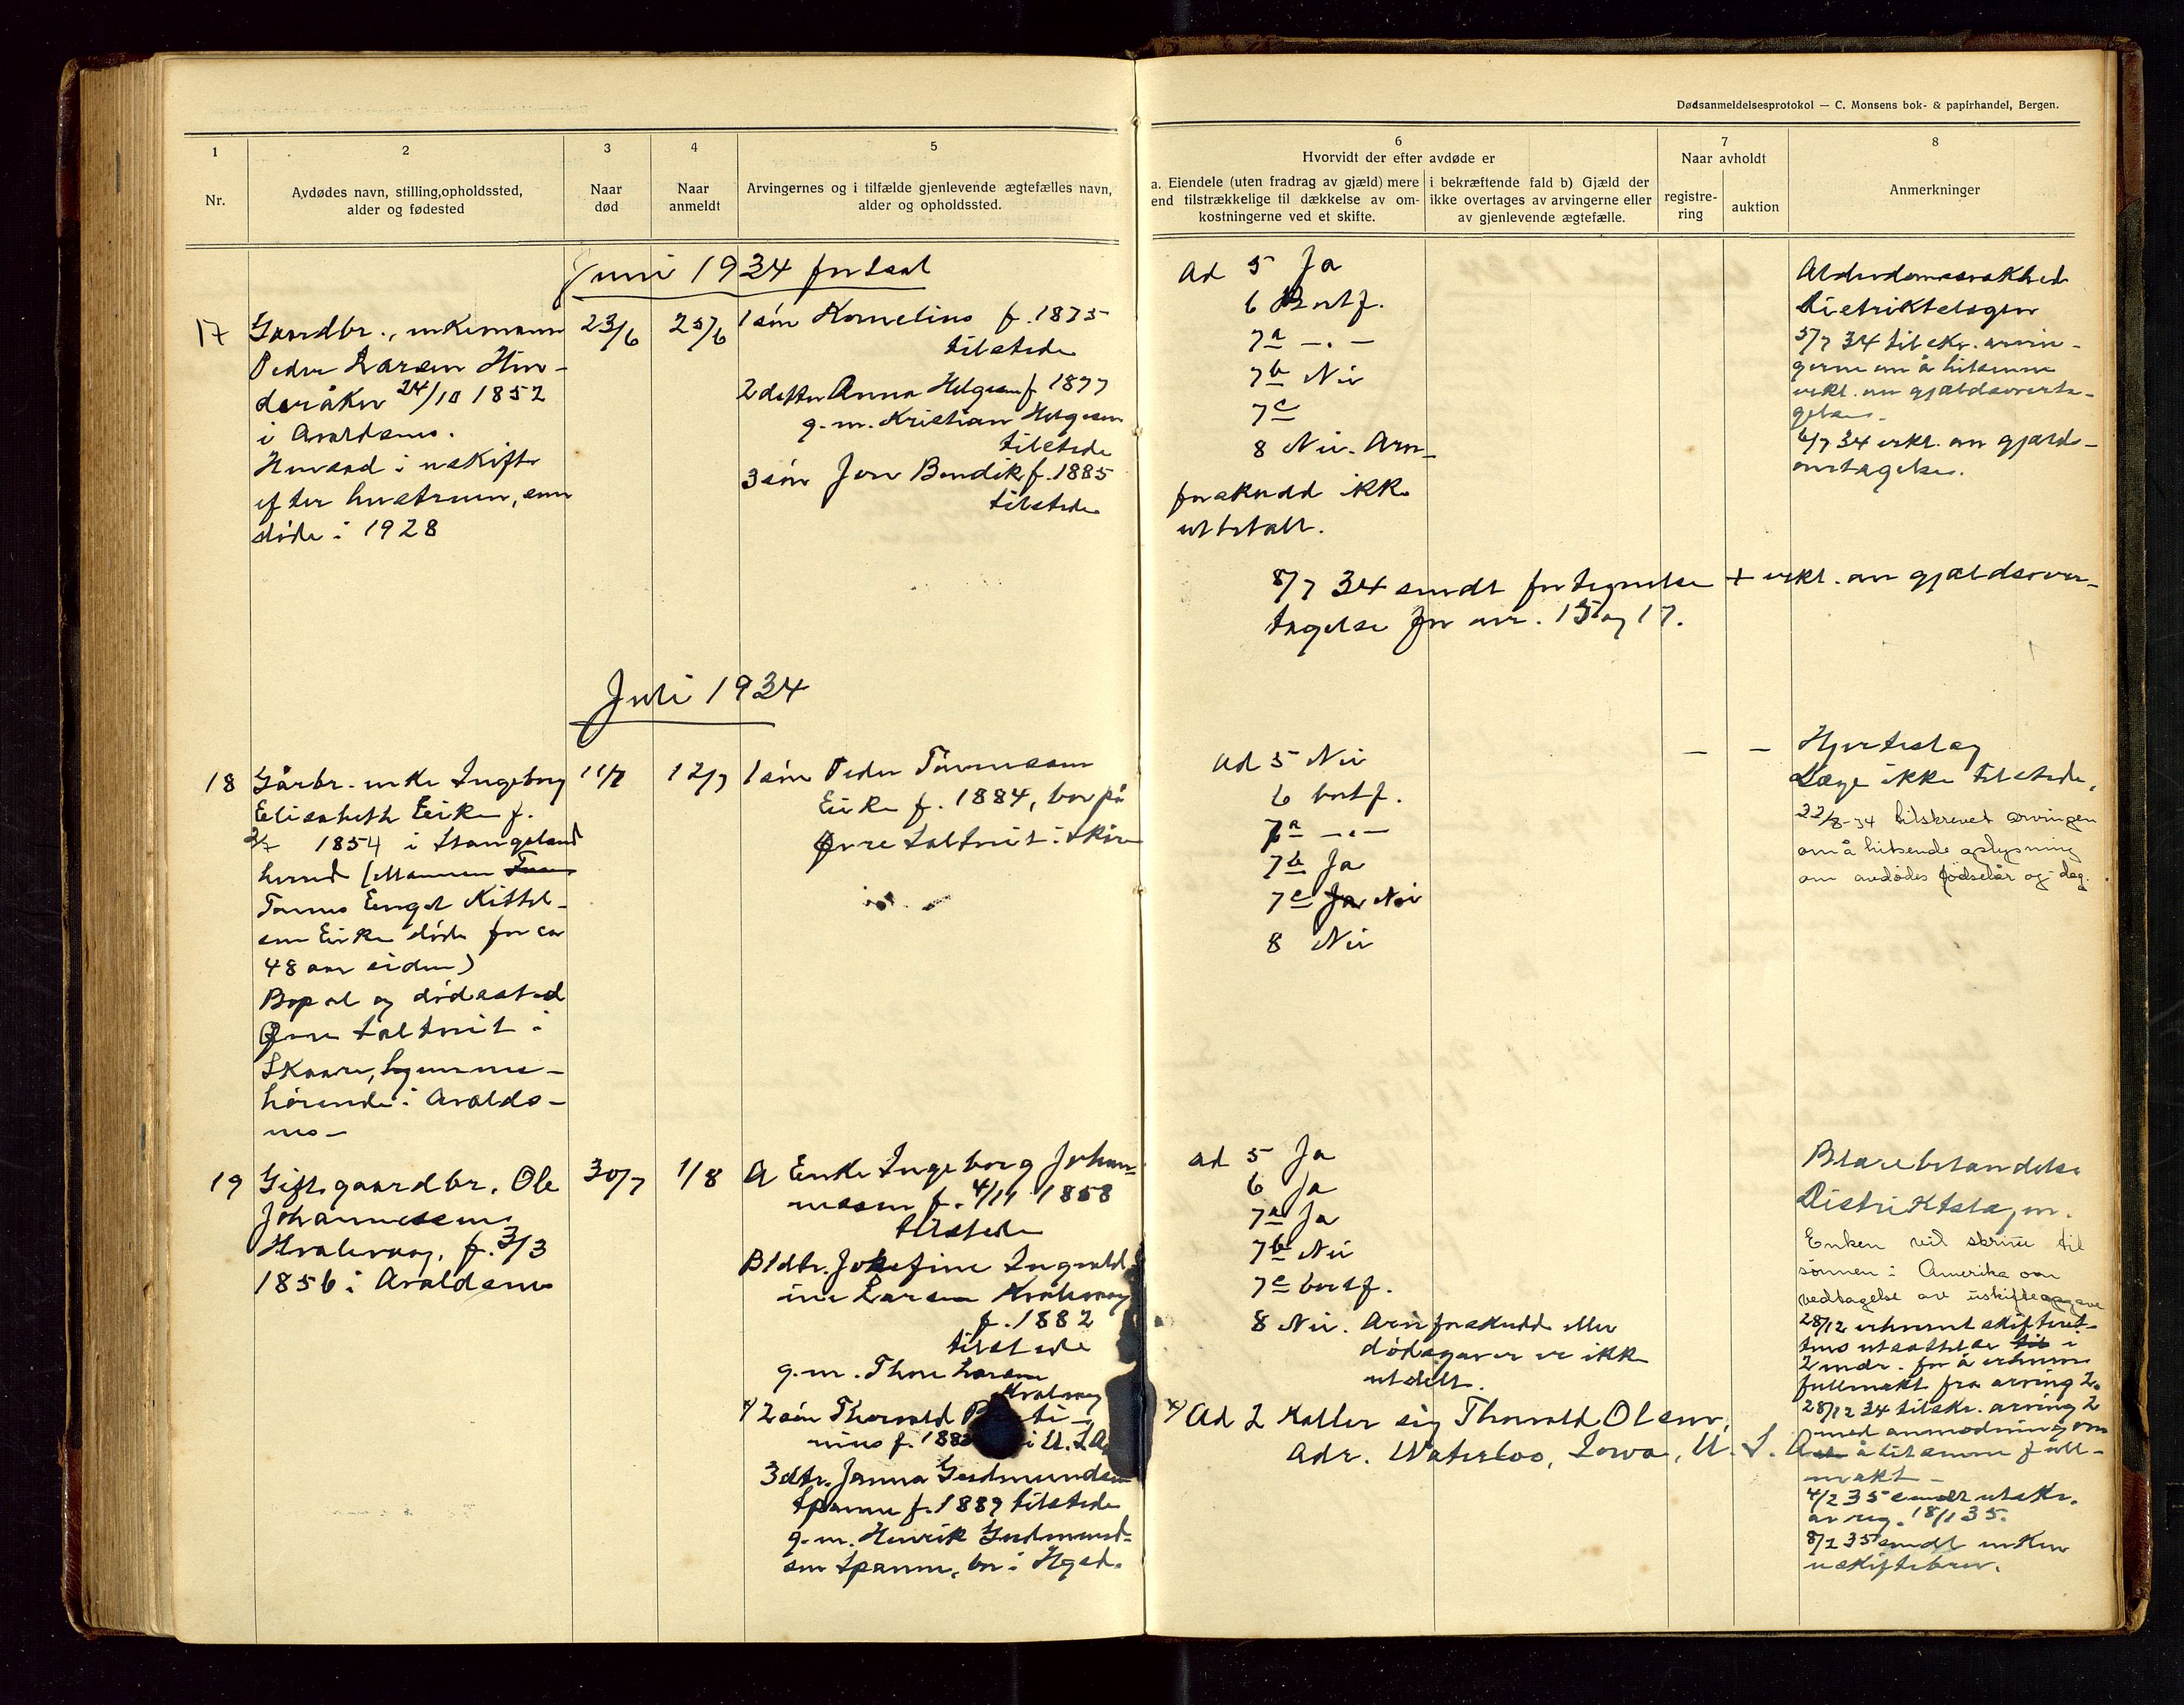 Dødsanmeldelsesprotokol — C. Monsens bok- & papirhandel, Bergen.
1
2
3
4
5
6
7
8
Nr.
Avdødes navn, stilling, opholdssted,
alder og fødested
Naar
død
Naar
anmeldt
Arvingernes og i tilfælde gjenlevende ægtefælles navn,
alder og opholdssted.
Hvorvidt der efter avdøde er
a. Eiendele (uten fradrag av gjæld) mere
end tilstrækkelige til dækkelse av om-
kostningerne ved et skifte.
i bekræftende fald b) Gjæld der
ikke overtages av arvingerne eller
av gjenlevende ægtefælle.
Naar avholdt
registre-
ring
auktion
Anmerkninger
Juni 1934 fortsat
17
Gaardbr., enkemann
Peder Larsen Hin-
deråker 24/10 1852
i Avaldsnes.
Hensad i uskifte
efter hustruen, som
døde i 1928
23/6
25/6
1 søn Kornelius f. 1875
tilstede
2 datter Anna Helgesen f 1877
g.m. Kristian Helgesen
tilstede
3 søn Jon Bendik f. 1885
tilstede
Ad 5 Ja
6 Bortf.
7a — . —
7b Nei
7c
8 Nei. Arv-
forskudd ikke
utbetalt.
Alderdomssvakhed
Distriktslægen
5/7 34 tilskr. arvin-
gerne om å hitsende
erkl. om gjældsoverta-
gelsen.
6/7 34 erkl. om gjælds-
overtagelse.
8/7 34 sendt fortegnelse + erkl. om gjældsover-
tagelse for nr. 15 og 17.
Juli 1934
18
Gårbr. enke Ingeborg
Elisabeth Eike f.
2/7 1854 i Stangeland
hvoed (Mannen
Tønnes Enget Kittel-
sen Eike døde for ca
48 aar siden)
Bopæl og dødssted
Øvre Saltveit i
Skaare, hjemme-
hørende i Avalds-
nes —
11/7
12/7
1 søn Peder Tønnessen
Eike f. 1884, bor på
Øvre Saltveit i Skåre
ad 5 Nei
6 bortf.
7a — . —
7b Ja
7c Ja Nei
8 Nei
— —
Hjerteslag
Læge ikke tilstede.
22/8-34 tilskrevet arvingen
om å hitsende oplysning
om avdødes fødselsår og dag.
19
Gift gaardbr. Ole
Johannessen
Hvalevaag, f. 3/3
1856 i Avaldsnes
30/7
1/8
A Enke Ingeborg Johan-
nessen f. 4/11 1858
tilstede
B 1 dtr. Josefine Ingvald
ine Larsen Kvalevaag
f. 1882
tilstede
g.m. Thore Larsen
Kvalevaag
x) 2 søn Thorvald
nius f. 188 i U.S.A.
3 dtr. Janna Gudmundsen
Spanne f. 1889 tilstede
g.m. Henrik Gudmund-
sen Spanne, bor i Hgsd.
ad 5 Ja
6 Ja
7a Ja
7b Nei
7c bortf.
8 Nei. Arvforskudd eller
dødsgaver er ikke
utdelt.
x) Ad 2 Kaller sig Thorvald Olsen,
Adr. Waterloo, Iowa, U.S.A.
Blærebetændelse
Distriktslægen.
Enken vil skrive til
sønnen i Amerika om
vedtagelse av uskifteopgave
28/12 erkjent skifteret-
tens utsettelse til i
2 mdr. for å erhverve
fullmakt fra arving 2.
28/12 34 tilskr. arving 2
med anmodning om
å tilsende full-
makt —
4/2 35 sendt utskr.
av reg. 18/1 35.
8/2 35 sendt enken
uskiftebrev.